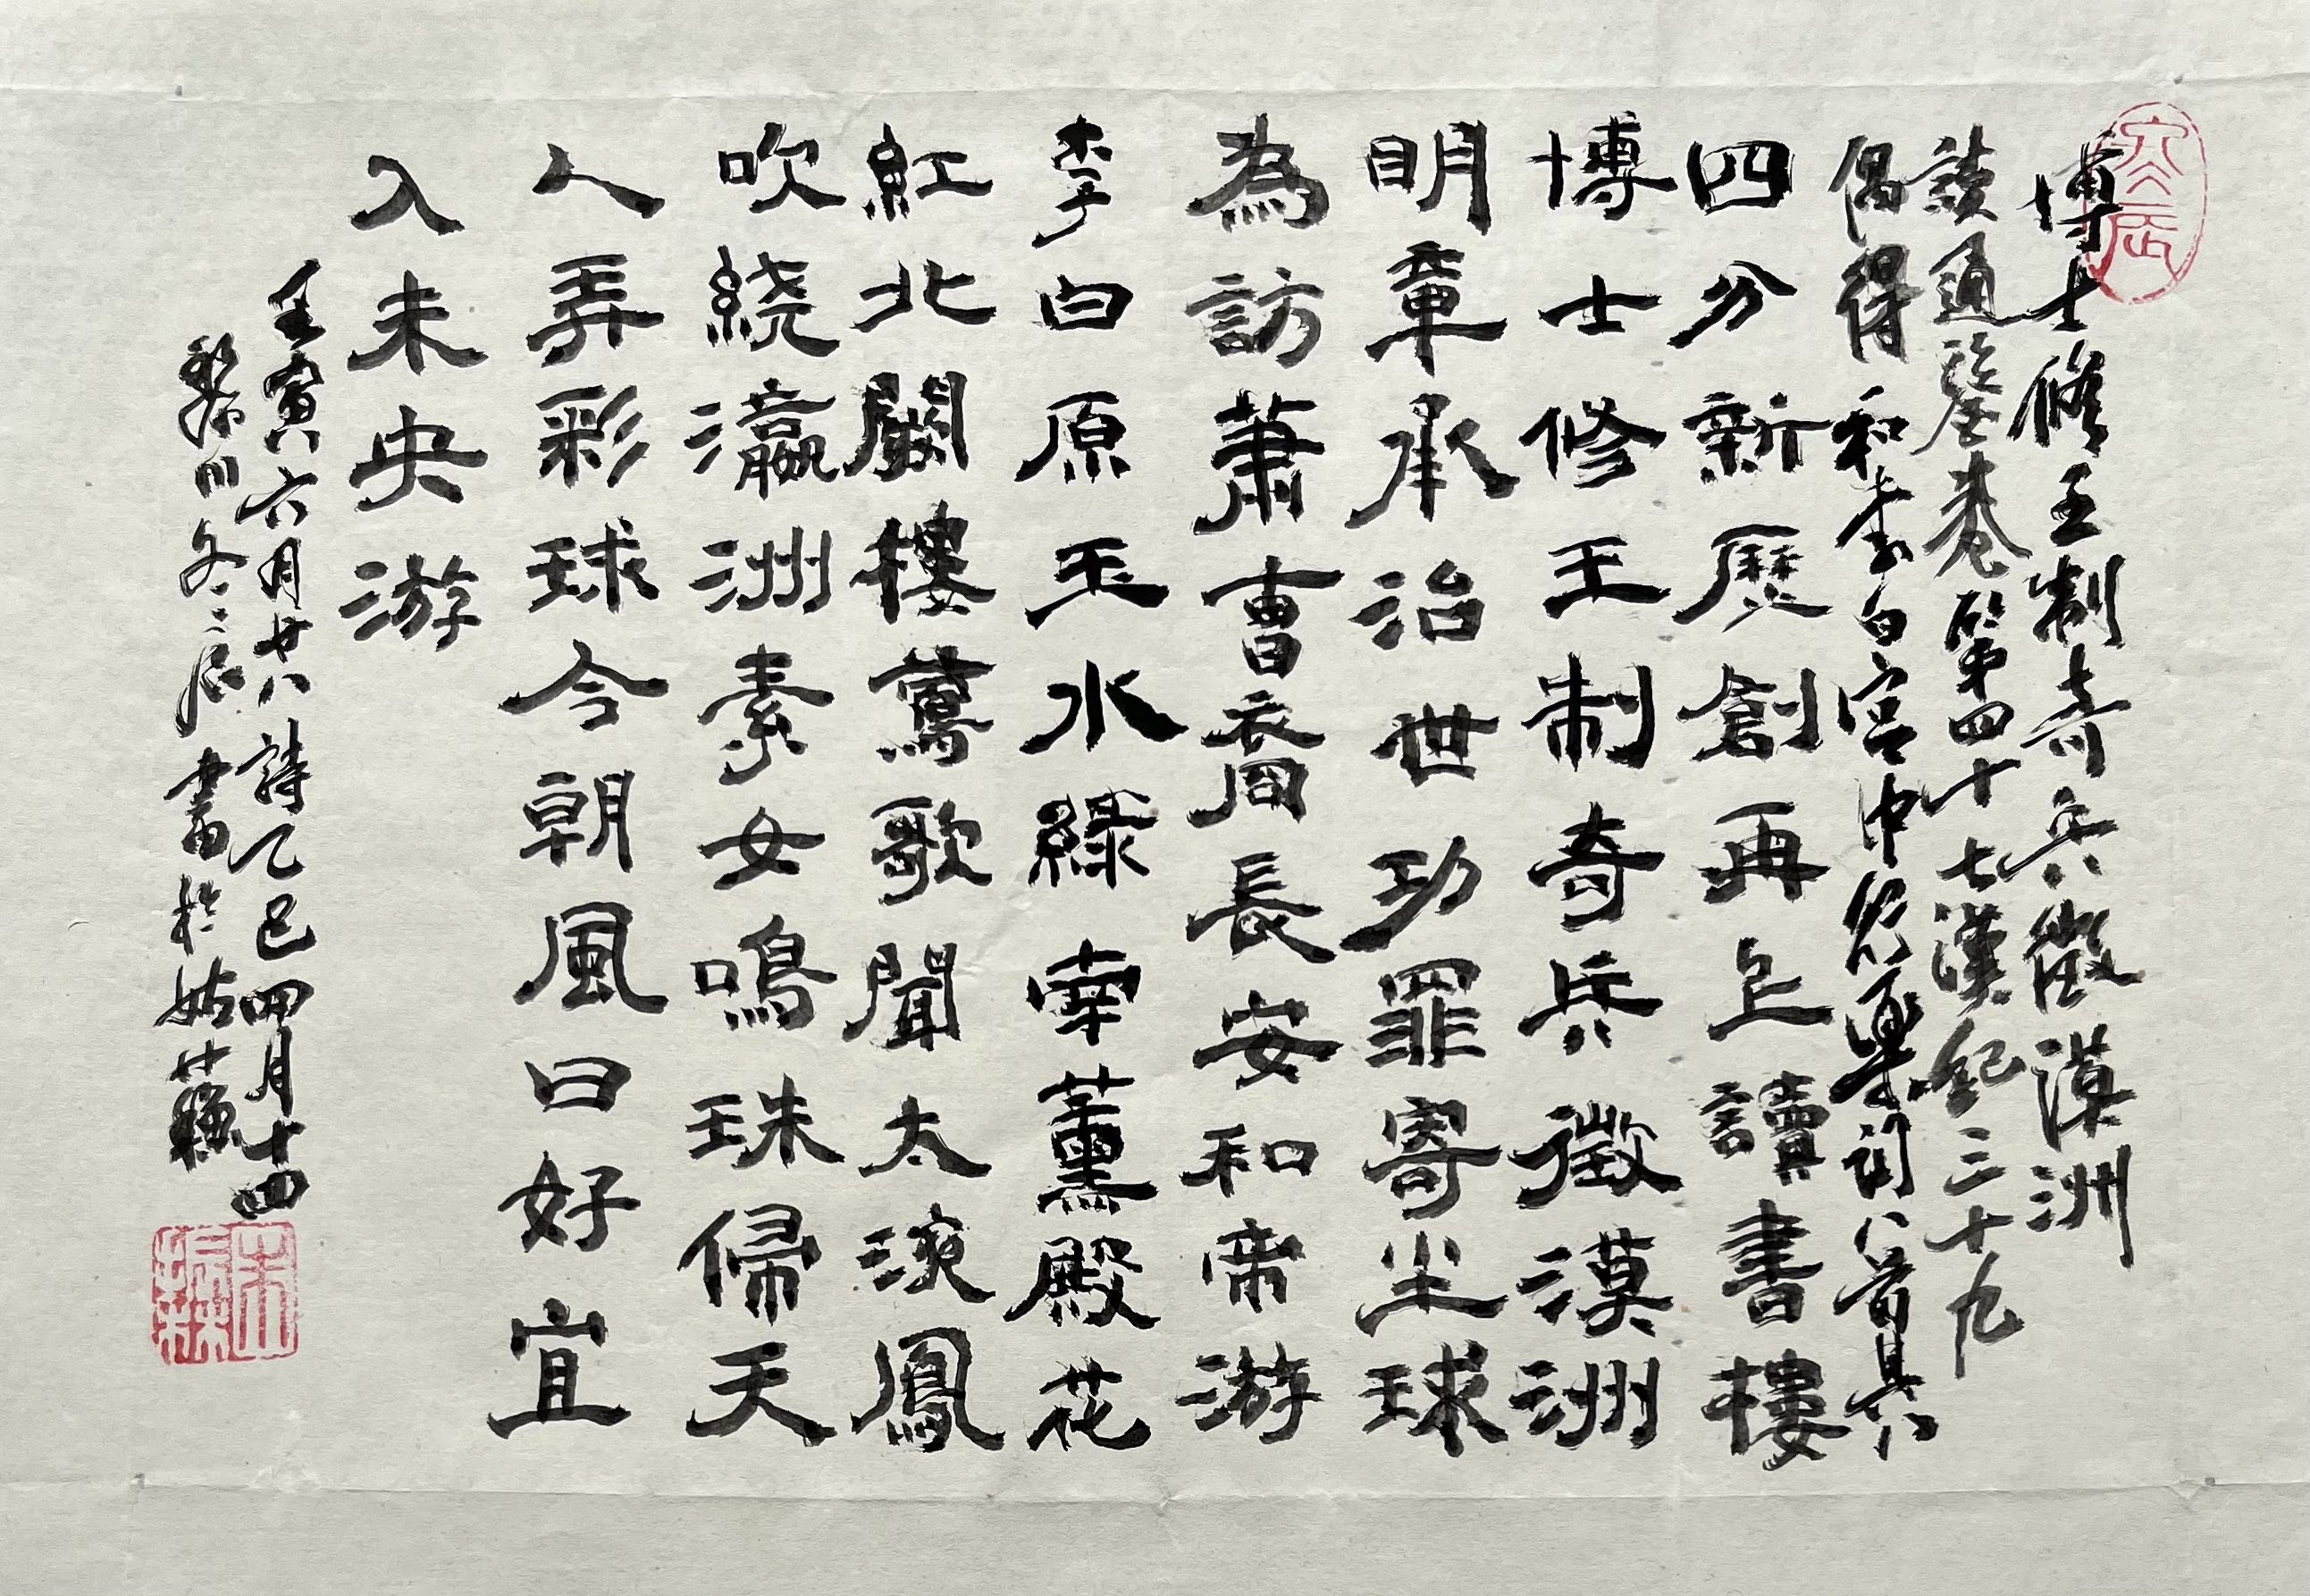 博士修王制奇兵徵漠洲
讀通鑒卷第四十七漢紀三十九
偶得和李白宮中行樂詞八首其八
四分新歷創再上讀書樓
博士修王制奇兵徵漠洲
明章承治世功罪寄尘球
為訪蕭曹裔長安和帝游
李白原玉水綠南薰殿花
紅北闕樓鶯歌聞太液鳳
吹繞瀛洲素女鳴珠佩天
人弄彩球今朝風日好宜
入未央游
壬寅六月廿八詩乙巳四月十四
黎川冬辰書於姑蘇